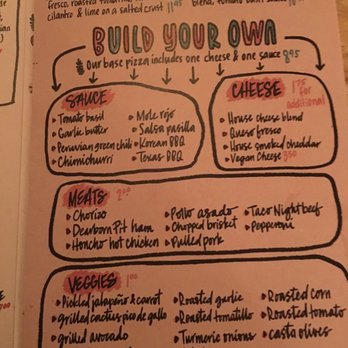 fresco, roasted
cilantro & lime on a salted crust 11.95
BUILD YOUR OWN
Our base pizza includes one cheese & one sauce 8.95
SAUCE
• Tomato basil
• Garlic butter
• Peruvian green chili
• Chimichurri
• Mole rojo
• Salsa pasilla
• Korean BBQ
• Texas BBQ
CHEESE 1.75 for additional
• House cheese blend
• Queso fresco
• House smoked cheddar
• Vegan Cheese 3.50
MEATS 2.00
• Chorizo
• Dearborn Pit ham
• Honcho hot chicken
• Pollo asado
• Chopped brisket
• Pulled pork
• Taco Night beef
• Pepperoni
VEGGIES 1.00
• Pickled jalapeño & carrot
• grilled cactus pico de gallo
• grilled avocado
• Roasted garlic
• Roasted tomatillo
• Turmeric onions
• Roasted corn
• Roasted tomato
• Casta olives